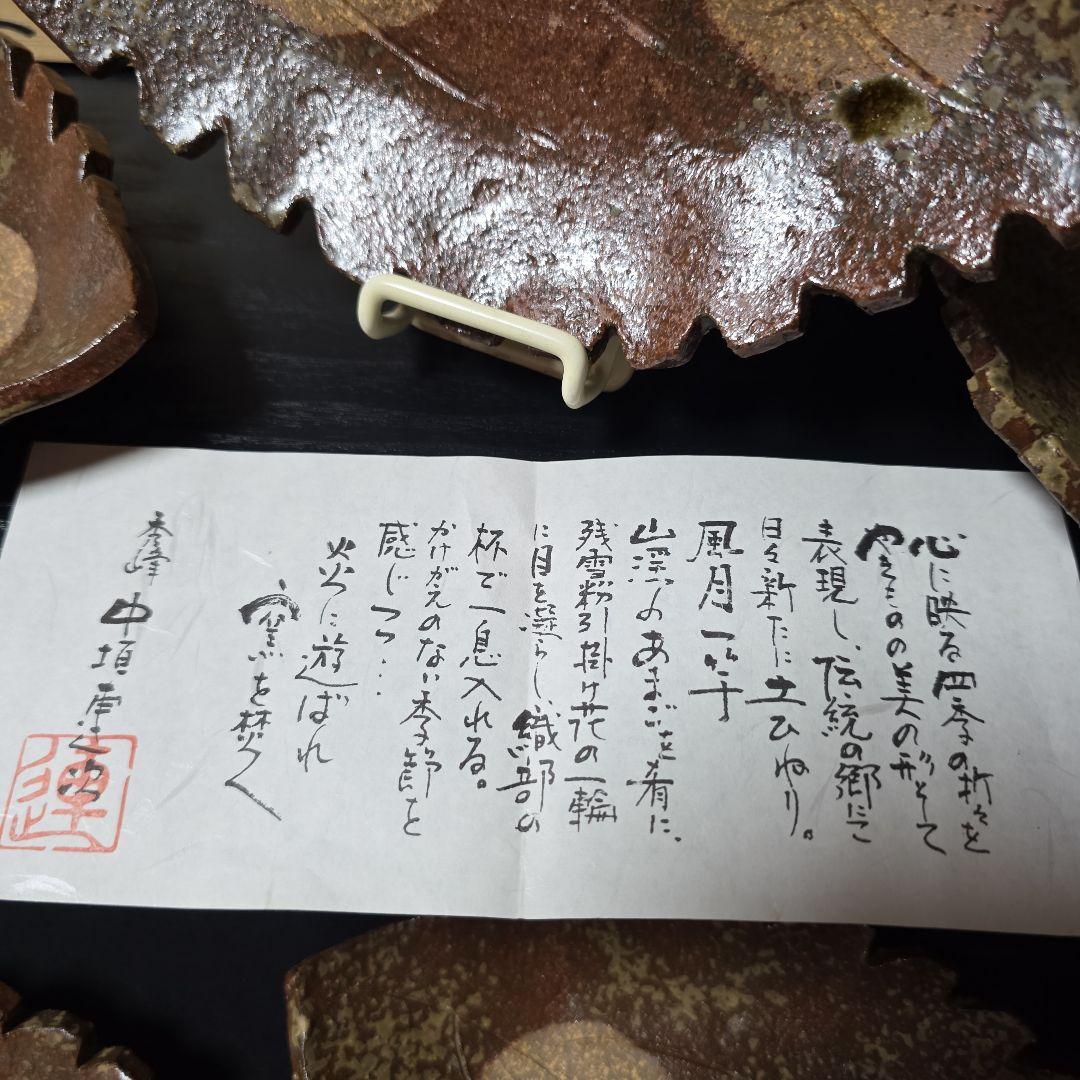 心に映る四季の折々を
やきものの美の形として
表現し、伝統の郷にて
日々新たに土ひねり。
風月一竿
山深のあまごを肴に、
残雪粉引掛け花の一輪
に目を凝らし、織部の
杯で一息入れる。
かけがえのない季節を
感じつつ…
炎に遊ばれ
窯を焚く
秀峰 中項 次